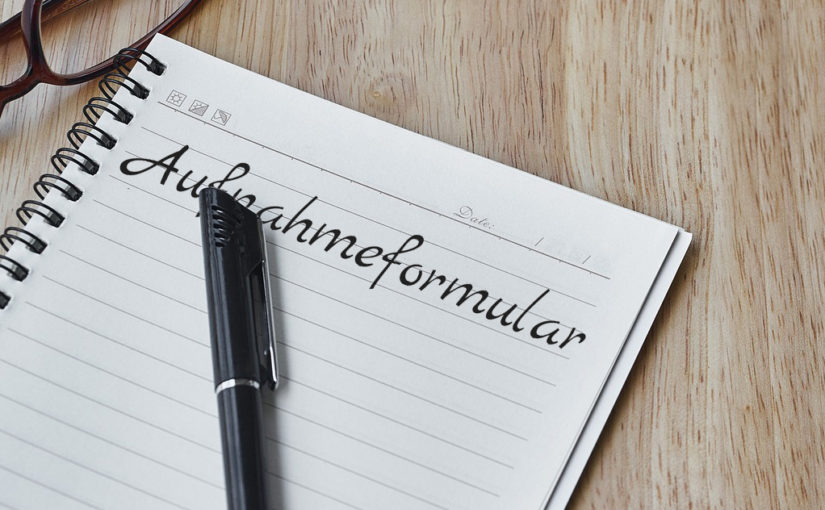 Date:
Aufnahmeformular